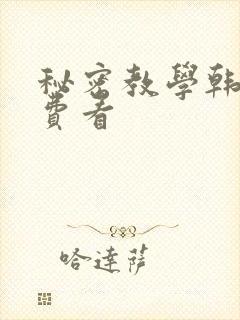 秘密教學韩
費看
哈達萨